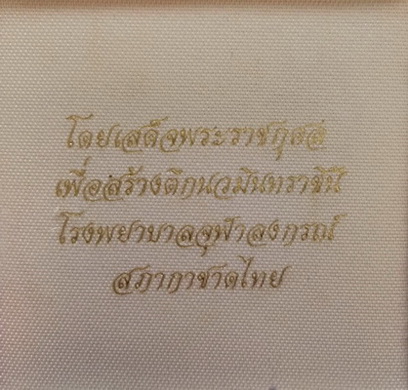 โดยเสด็จพระราชกุศล
เพื่อสร้างตึกนวมินทราชินี
โรงพยาบาลจุฬาลงกรณ์
สภากาชาดไทย